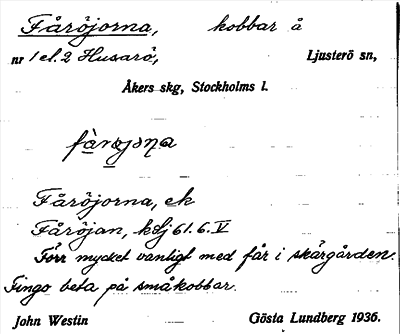 Fåröjorna, kobbar å
nr 1 el. 2 Husarö, Ljusterö sn,
Åkers skg, Stockholms l.
Fåröjorna, ek
Fåröjan, kslj 61.6.V
Förr mycket vanligt med får i skärgården.
Fingo beta på småkobbar.
John Westin Gösta Lundberg 1936.